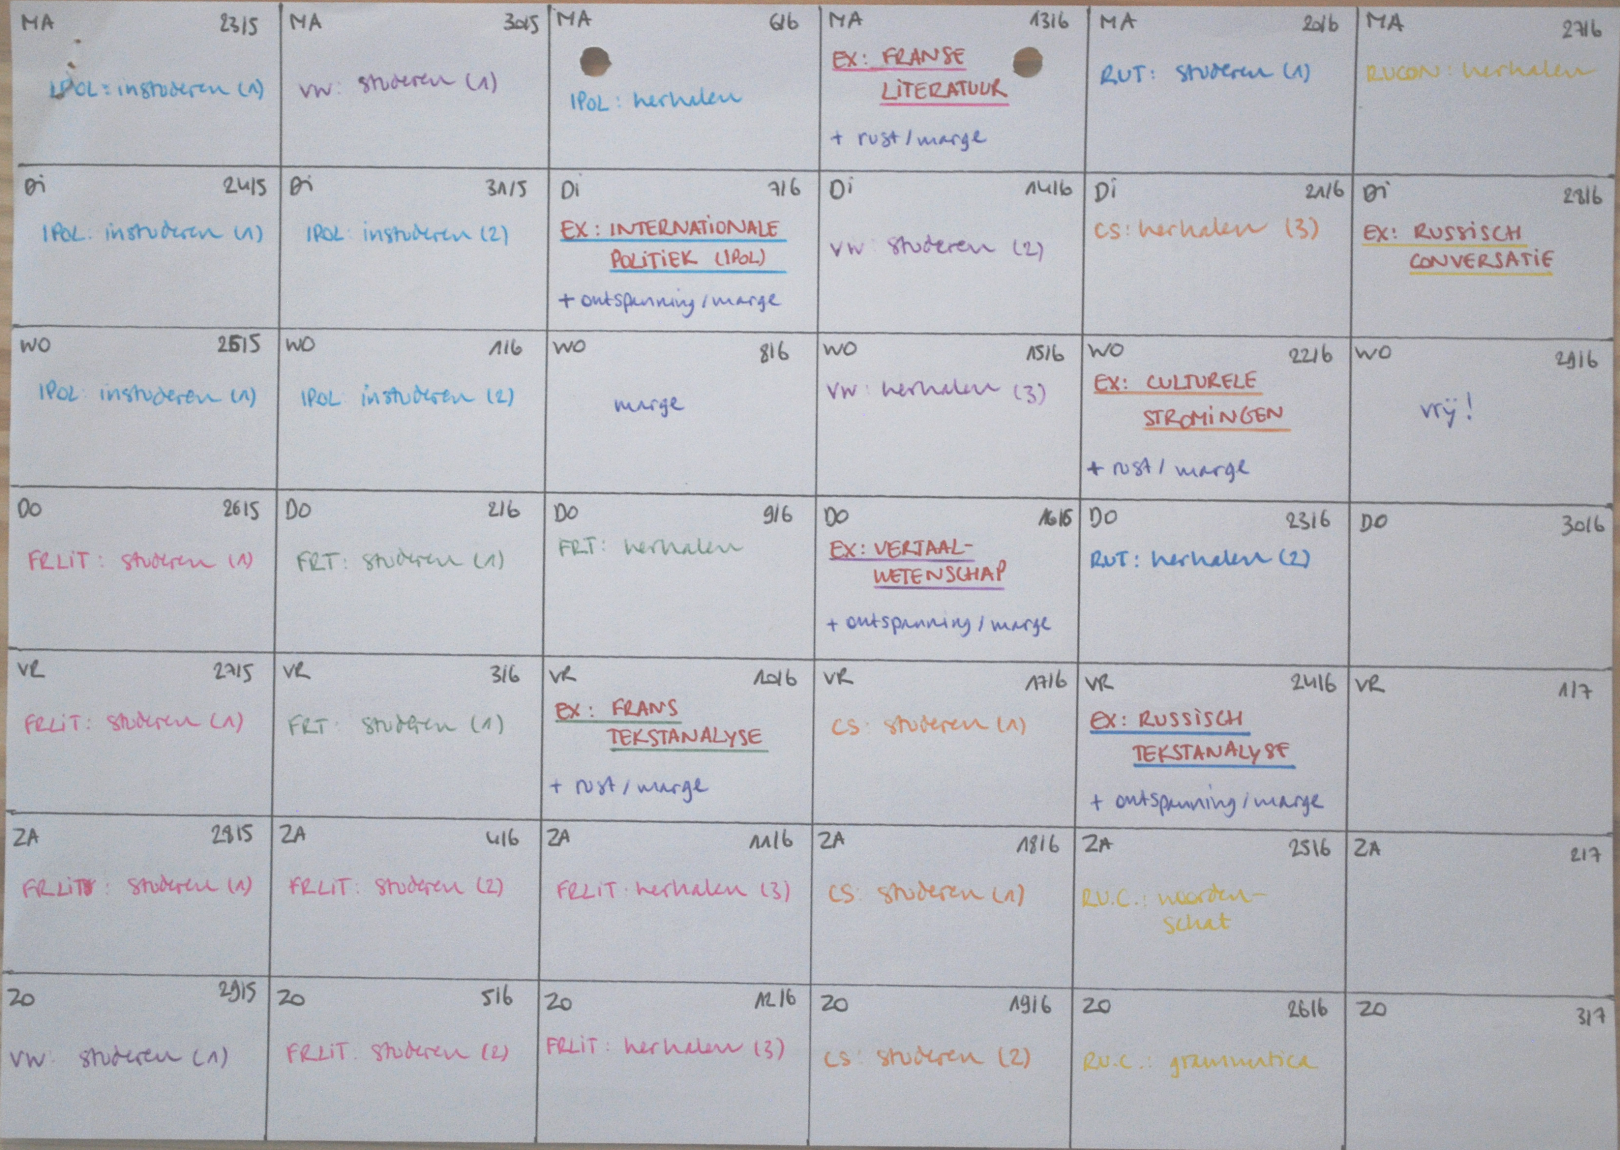 MA 23/5
IPOL: instuderen (1)
MA 30/5
VW: studeren (1)
MA 6/6
IPOL: herhalen
MA 13/6
EX: FRANSE
LITERATUUR
+ rust/marge
MA 20/6
RUT: studeren (1)
MA 27/6
RUCON: herhalen
DI 24/5
IPOL: instuderen (1)
DI 31/5
IPOL: instuderen (2)
DI 7/6
EX: INTERNATIONALE
POLITIEK (IPOL)
+ ontspanning/marge
DI 14/6
VW: studeren (2)
DI 21/6
CS: herhalen (3)
DI 28/6
EX: RUSSISCH
CONVERSATIE
WO 25/5
IPOL: instuderen (1)
WO 1/6
IPOL: instuderen (2)
WO 8/6
marge
WO 15/6
VW: herhalen (3)
WO 22/6
EX: CULTURELE
STROMINGEN
+ rust/marge
WO 29/6
vrij!
DO 26/5
FRLIT: studeren (1)
DO 2/6
FRT: studeren (1)
DO 9/6
FRT: herhalen
DO 16/6
EX: VERTAAL-
WETENSCHAP
+ ontspanning/marge
DO 23/6
RUT: herhalen (2)
DO 30/6
VR 27/5
FRLIT: studeren (1)
VR 3/6
FRT: studeren (1)
VR 10/6
EX: FRANS
TEKSTANALYSE
+ rust/marge
VR 17/6
CS: studeren (1)
VR 24/6
EX: RUSSISCH
TEKSTANALYSE
+ ontspanning/marge
VR 1/7
ZA 28/5
FRLIT: studeren (1)
ZA 4/6
FRLIT: studeren (2)
ZA 11/6
FRLIT: herhalen (3)
ZA 18/6
CS: studeren (1)
ZA 25/6
RU.C.: woorden-
schat
ZA 2/7
ZO 29/5
VW: studeren (1)
ZO 5/6
FRLIT: studeren (2)
ZO 12/6
FRLIT: herhalen (3)
ZO 19/6
CS: studeren (2)
ZO 26/6
RU.C.: grammatica
ZO 3/7